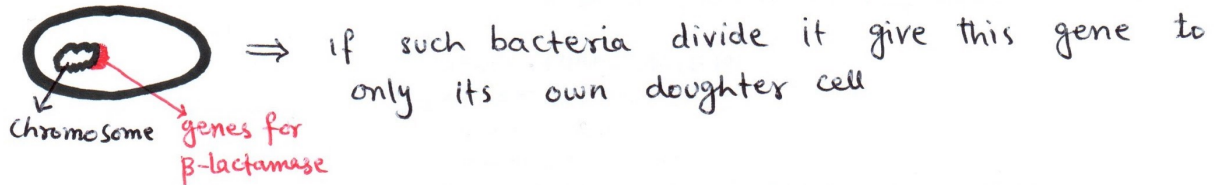 ⇒ if such bacteria divide it give this gene to
only its own doughter cell
Chromosome
genes for
β-lactamase